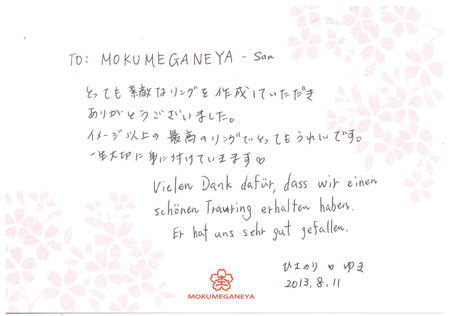 TO: MOKUMEGANEYA - San
とっても素敵なリングを作成していただき
ありがとうございました。
イメージ以上の最高のリングでとってもうれしいです。
一生大切に身に付けていきます♡
Vielen Dank dafür, dass wir einen
schönen Trauring erhalten haben.
Er hat uns sehr gut gefallen.
ひでのり ♡ ゆき
2013.8.11
MOKUMEGANEYA